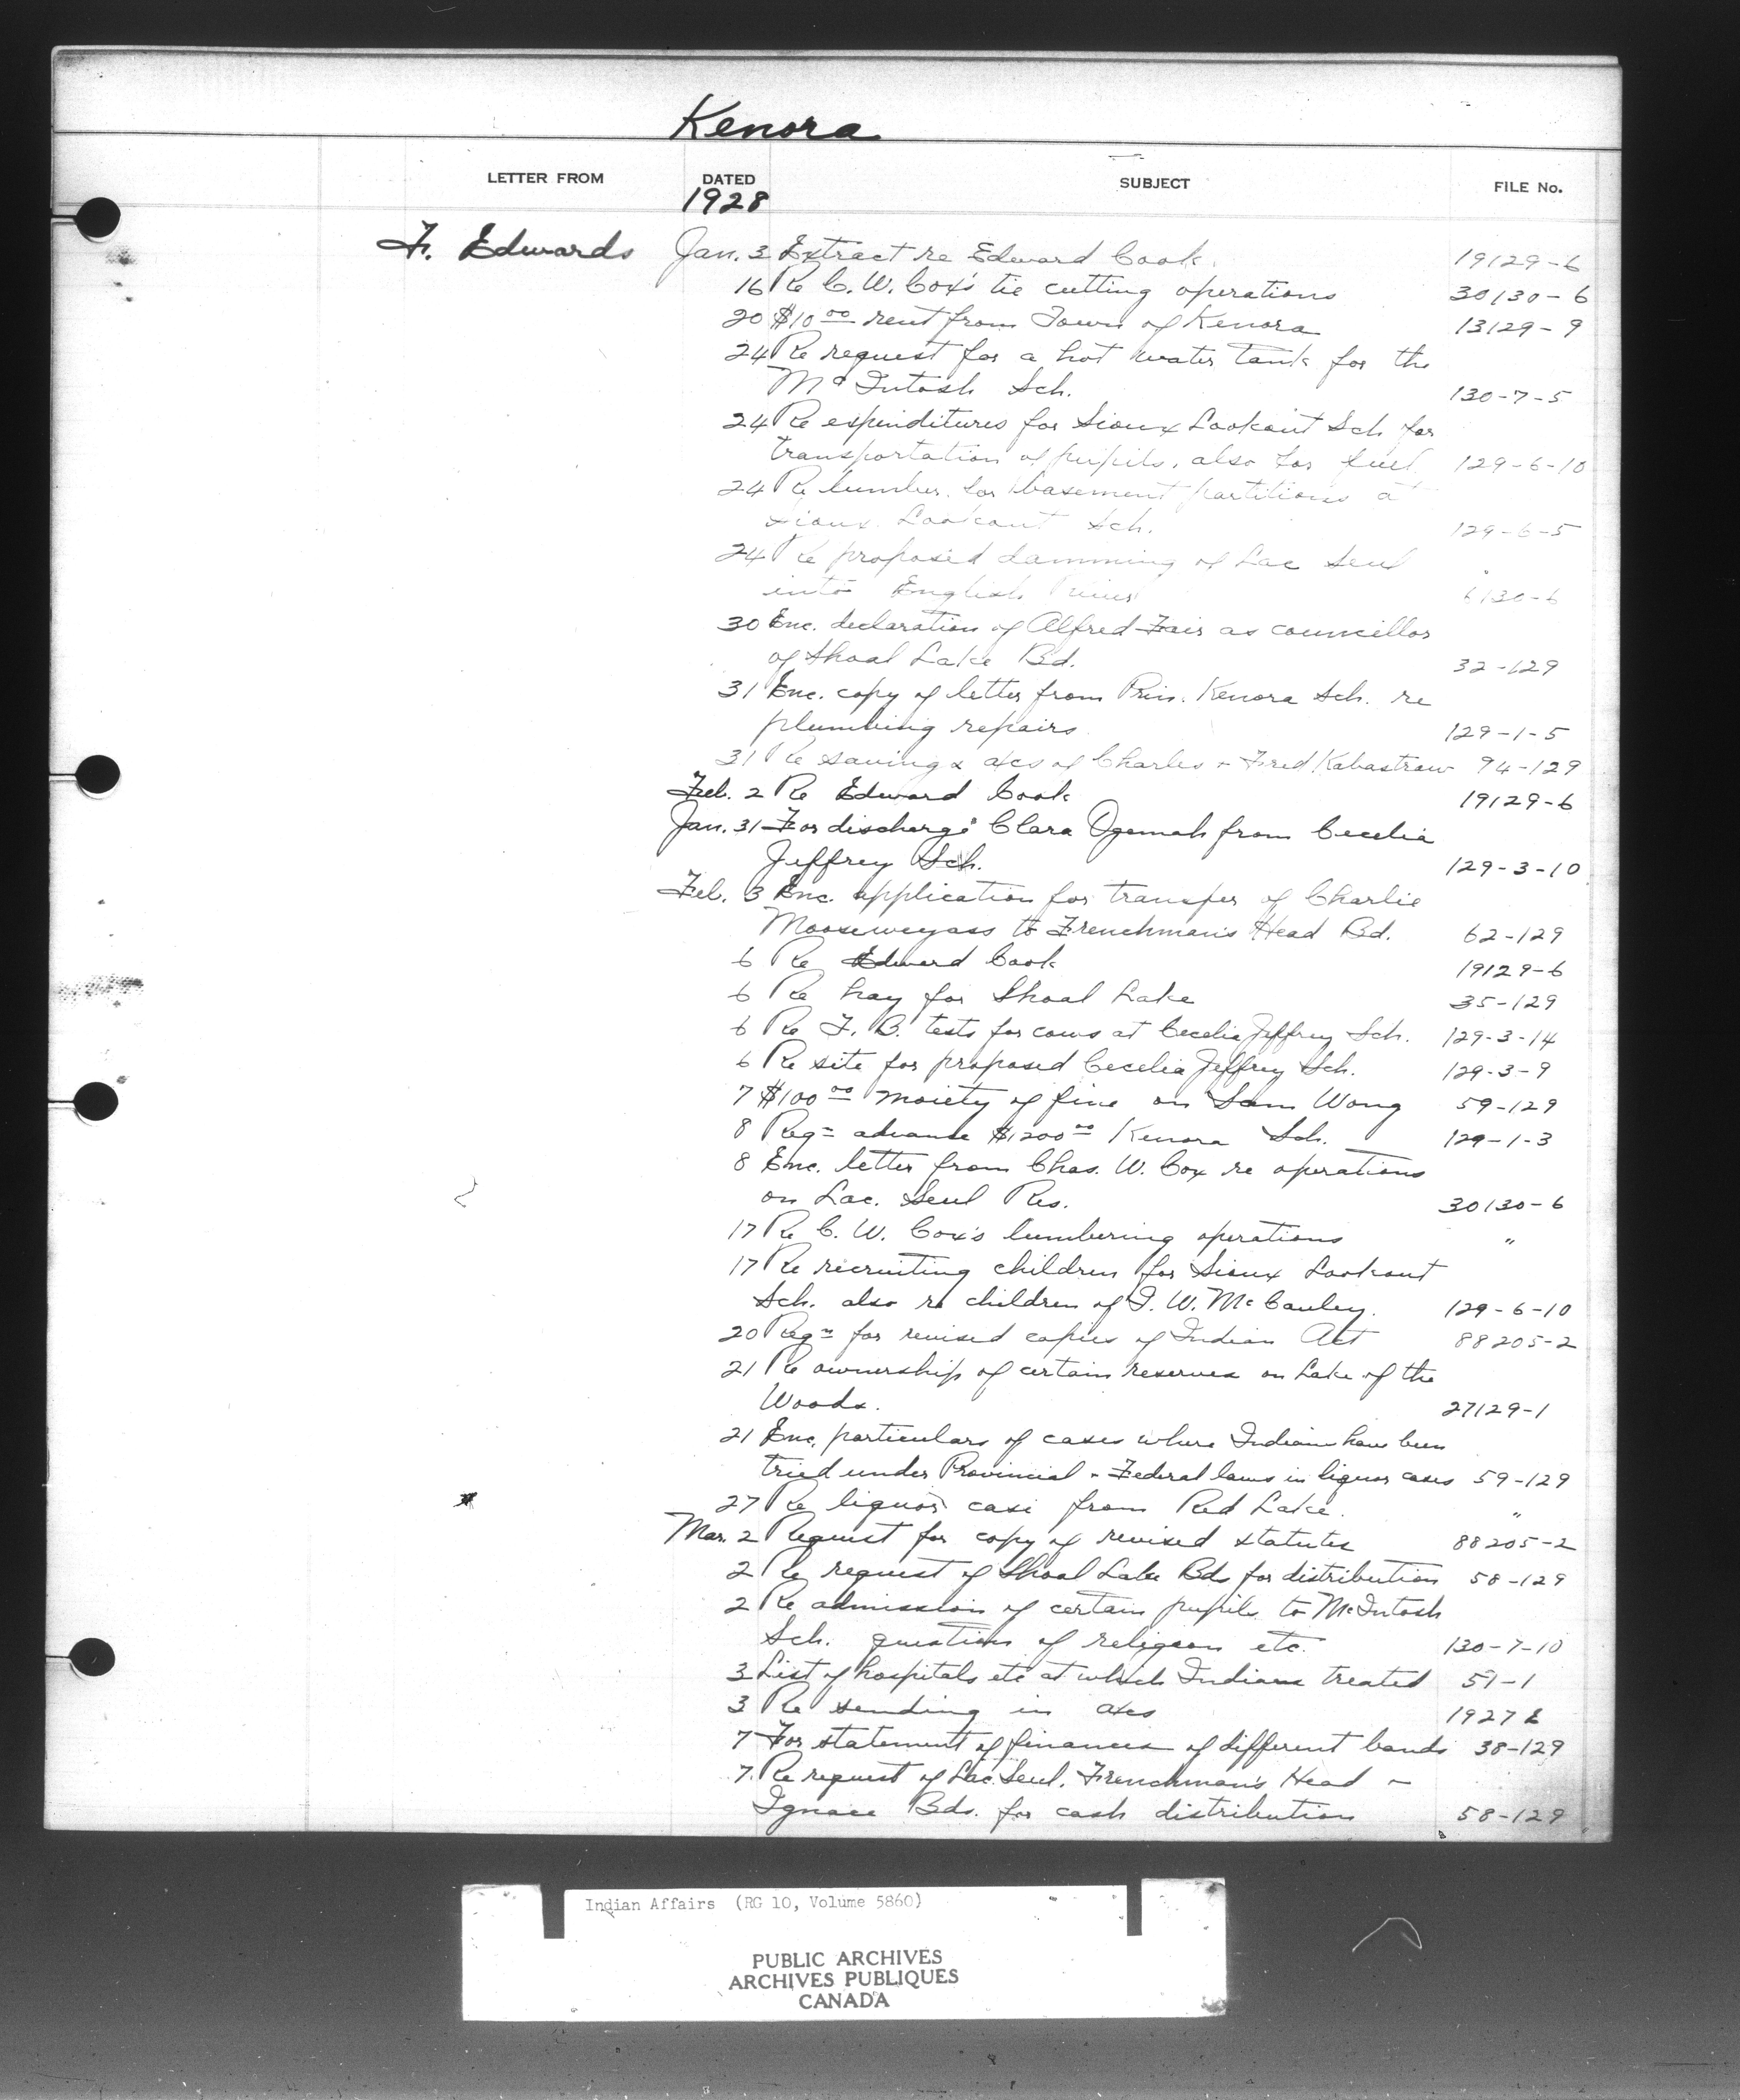 Kenora
LETTER FROM DATED SUBJECT FILE No.
1928
F. Edwards Jan. 3 Extract re Edward Cook. 19129-6
16 Re C. W. Cox's tie cutting operations 30130-6
20 $10.00 rent from Town of Kenora 13129-9
24 Re request for a hot water tank for the
McIntosh Sch. 130-7-5
24 Re expenditures for Sioux Lookout Sch for
transportation of pupils, also for fuel 129-6-10
24 Re lumber for basement partitions at
Sioux Lookout Sch. 129-6-5
24 Re proposed damming of Lac Seul
into English River 6130-6
30 Enc. declaration of Alfred Fair as councillor
of Shoal Lake Bd. 32-129
31 Enc. copy of letter from Prin. Kenora Sch. re
plumbing repairs 129-1-5
31 Re savings a/cs of Charles & Fred Kabastraw 94-129
Feb. 2 Re Edward Cook 19129-6
Jan. 31 For discharge Clara Ogemah from Cecelia
Jeffrey Sch. 129-3-10
Feb. 3 Enc. application for transfer of Charlie
Mooseweyass to Frenchman's Head Bd. 62-129
6 Re Edward Cook 19129-6
6 Re hay for Shoal Lake 35-129
6 Re T. B. tests for cows at Cecelia Jeffrey Sch. 129-3-14
6 Re site for proposed Cecelia Jeffrey Sch. 129-3-9
7 $100.00 moiety of fine on Sam Wong 59-129
8 Reqn advance $1200.00 Kenora Sch. 129-1-3
8 Enc. letter from Chas. W. Cox re operations
on Lac. Seul Res. 30130-6
17 Re C. W. Cox's lumbering operations "
17 Re recruiting children for Sioux Lookout
Sch. also re children of J. W. McCauley. 129-6-10
20 Reqn for revised copies of Indian Act 88205-2
21 Re ownership of certain reserves on Lake of the
Woods. 27129-1
21 Enc. particulars of cases where Indians have been
tried under Provincial & Federal laws in liquor cases 59-129
27 Re liquor case from Red Lake. "
Mar. 2 Request for copy of revised statutes 88205-2
2 Re request of Shoal Lake Bds for distribution 58-129
2 Re admission of certain pupils to McIntosh
Sch. question of religion etc. 130-7-10
3 List of hospitals etc at which Indians treated 51-1
3 Re sending in a/cs 1927
7 For statement of finances of different bands 38-129
7. Re request of Lac Seul, Frenchman's Head &
Ignace Bds. for cash distribution 58-129
Indian Affairs (RG 10, Volume 5860)
PUBLIC ARCHIVES
ARCHIVES PUBLIQUES
CANADA